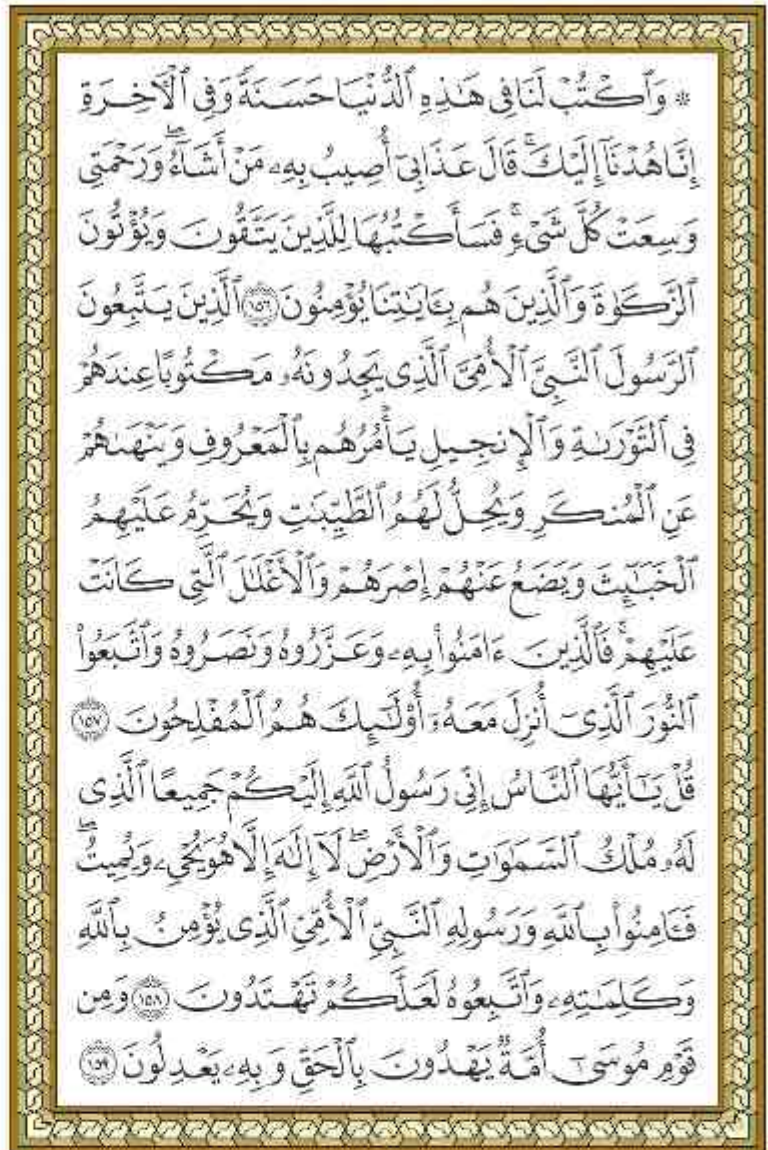 ۞ وَٱكْتُبْ لَنَا فِى هَـٰذِهِ ٱلدُّنْيَا حَسَنَةً وَفِى ٱلْـَٔاخِرَةِ
إِنَّا هُدْنَآ إِلَيْكَ ۚ قَالَ عَذَابِىٓ أُصِيبُ بِهِۦ مَنْ أَشَآءُ ۖ وَرَحْمَتِى
وَسِعَتْ كُلَّ شَىْءٍ ۚ فَسَأَكْتُبُهَا لِلَّذِينَ يَتَّقُونَ وَيُؤْتُونَ
ٱلزَّكَوٰةَ وَٱلَّذِينَ هُم بِـَٔايَـٰتِنَا يُؤْمِنُونَ ١٥٦ ٱلَّذِينَ يَتَّبِعُونَ
ٱلرَّسُولَ ٱلنَّبِىَّ ٱلْأُمِّىَّ ٱلَّذِى يَجِدُونَهُۥ مَكْتُوبًا عِندَهُمْ
فِى ٱلتَّوْرَىٰةِ وَٱلْإِنجِيلِ يَأْمُرُهُم بِٱلْمَعْرُوفِ وَيَنْهَىٰهُمْ
عَنِ ٱلْمُنكَرِ وَيُحِلُّ لَهُمُ ٱلطَّيِّبَـٰتِ وَيُحَرِّمُ عَلَيْهِمُ
ٱلْخَبَـٰٓئِثَ وَيَضَعُ عَنْهُمْ إِصْرَهُمْ وَٱلْأَغْلَـٰلَ ٱلَّتِى كَانَتْ
عَلَيْهِمْ ۚ فَٱلَّذِينَ ءَامَنُوا۟ بِهِۦ وَعَزَّرُوهُ وَنَصَرُوهُ وَٱتَّبَعُوا۟
ٱلنُّورَ ٱلَّذِىٓ أُنزِلَ مَعَهُۥٓ ۙ أُو۟لَـٰٓئِكَ هُمُ ٱلْمُفْلِحُونَ ١٥٧
قُلْ يَـٰٓأَيُّهَا ٱلنَّاسُ إِنِّى رَسُولُ ٱللَّهِ إِلَيْكُمْ جَمِيعًا ٱلَّذِى
لَهُۥ مُلْكُ ٱلسَّمَـٰوَٰتِ وَٱلْأَرْضِ ۖ لَآ إِلَـٰهَ إِلَّا هُوَ يُحْىِۦ وَيُمِيتُ ۖ
فَـَٔامِنُوا۟ بِٱللَّهِ وَرَسُولِهِ ٱلنَّبِىِّ ٱلْأُمِّىِّ ٱلَّذِى يُؤْمِنُ بِٱللَّهِ
وَكَلِمَـٰتِهِۦ وَٱتَّبِعُوهُ لَعَلَّكُمْ تَهْتَدُونَ ١٥٨ وَمِن
قَوْمِ مُوسَىٰٓ أُمَّةٌ يَهْدُونَ بِٱلْحَقِّ وَبِهِۦ يَعْدِلُونَ ١٥٩